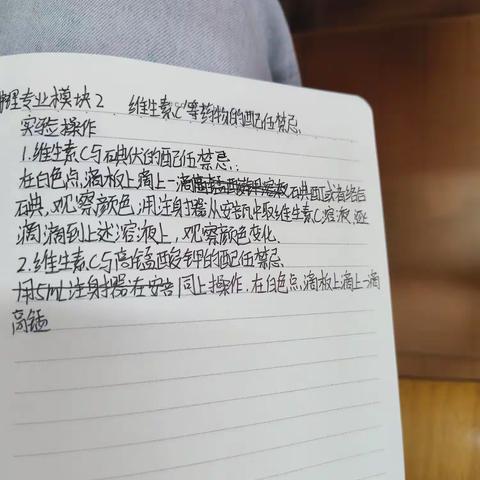 护理专业模块2 维生素C等药物的配伍禁忌.
实验操作
1.维生素C与碘伏的配伍禁忌.
在白色点滴板上滴上一滴碘酊或者络合
碘,观察颜色;用注射器从安瓿中取维生素C溶液,逐
滴滴到上述溶液上,观察颜色变化.
2.维生素C与高锰酸钾的配伍禁忌.
同上操作.在白色点滴板上滴上一滴
高锰